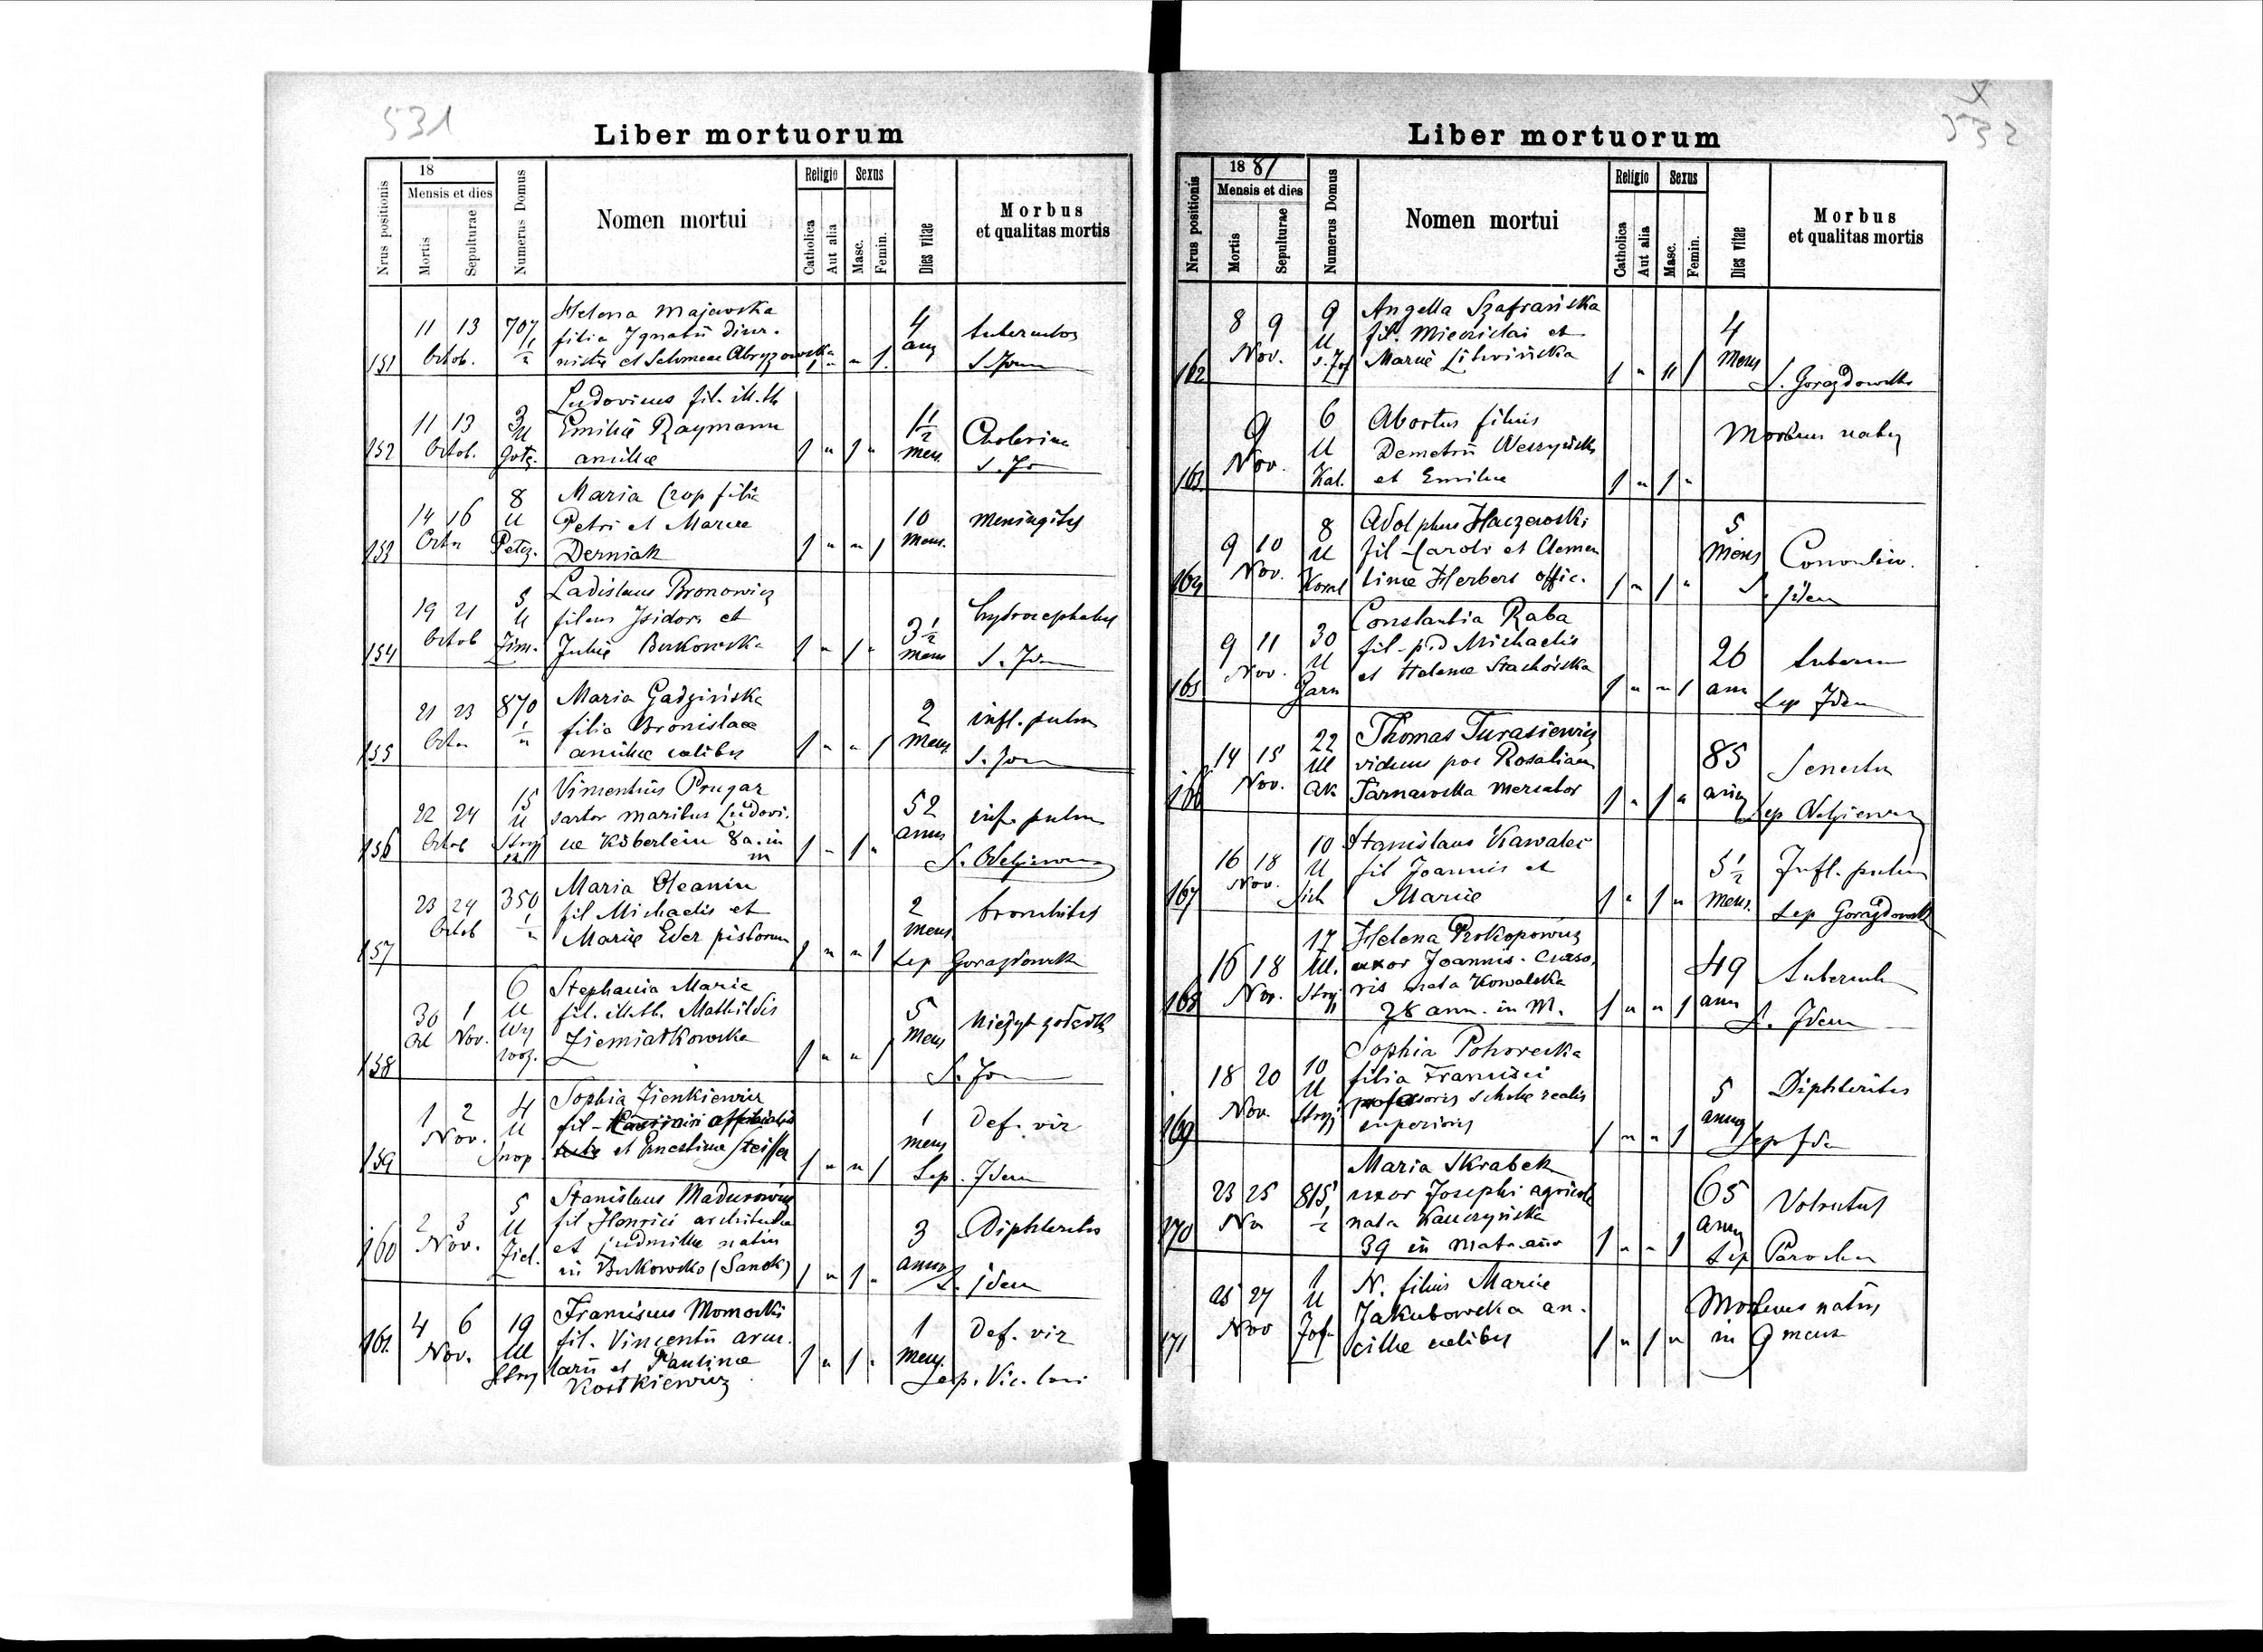 531
Liber mortuorum
Nrus positionis
18
Mensis et dies
Mortis
Sepulturae
Numerus Domus
Nomen mortui
Religio
Catholica
Aut alia
Sexus
Masc.
Femin.
Dies vitae
Morbus
et qualitas mortis
151
11 13
Octob.
707
Helena Majewska
filia Ignatii diur-
nistae et Abryzowska
4
152
11 13
Octob.
3
Ludovicus fil. ill. th
Emiliae Raymann
ancillae
1 1/2
mens.
Cholerina
153
14 16
8
u
Maria Czop filia
Petri et Mariae
Derniak
10
mens.
meningitis
154
19 21
Octob
5
u
Zim.
Ladislaus Bronowicz
filius Isidori et
Juliae Bukowska
3 1/2
mens
hydrocephalus
155
21 23
870
Maria Gadzińska
filia Bronislaae
ancillae celibis
2
mens
infl. pulm
156
22 24
Octob
15
u
Vincentius Prugar
sartor maritus Ludovi-
cae Köberlein 8 a. in
m
52
annus
inf. pulm
157
23 24
Octob
350
Maria Oleanin
fil Michaelis et
Mariae Eder pistorum
2
mens
bronchitis
Sep Gorazdowski
158
30 1
Oct Nov.
6
u
Stephania Maria
fil. ill. th. Mathildis
Ziemiatkowska
5
mens
Nieżyt żołądk
159
1 2
Nov.
4
u
Snop
Sophia Zienkiewicz
fil-
et Ernestina Steiffer
1
mens
Def. vir
Sep. Idem
160
2 3
Nov.
5
u
Ziel.
Stanislaus Madurowicz
fil Henrici architecta
et Ludmillae natus
in Bukowsko (Sanok)
3
annos
Diphteritis
S. idem
161
4 6
Nov.
19
u
Stry
Franciscus Momocki
fil. Vincentii arcu-
larii et Paulinae
Kostkiewicz
1
mens.
Def. vir
Sep. Vic. loci
532
Liber mortuorum
Nrus positionis
1881
Mensis et dies
Mortis
Sepulturae
Numerus Domus
Nomen mortui
Religio
Catholica
Aut alia
Sexus
Masc.
Femin.
Dies vitae
Morbus
et qualitas mortis
162
8 9
Nov.
9
u
S. Jof
Angella Szafrańska
fil. Miecislai et
Mariae Litwińska
4
Mens
S. Gorazdowski
163
9
Nov.
6
u
Kal.
Abortus filius
Demetrii
et Emiliae
Mortuus natus
164
9 10
Nov.
8
u
Adolphus Haczewski
fil Caroli et Clemen
tinae Herbert offic.
5
Mens
S. idem
165
9 11
Nov.
30
u
Garn
Constantia Raba
fil- p.d Michaelis
et Helenae Stachórska
26
ann
Sep Idem
166
14 15
Nov.
22
u
Thomas Turasiewicz
viduus por Rosaliam
Tarnawska mercator
85
167
16 18
Nov.
10
u
Stanislaus Kawalec
fil Joannis et
Mariae
5 1/2
mens.
Infl. pulm
Sep Gorazdowski
168
16 18
Nov.
17
u.
Stry
Helena Prokopowicz
uxor Joannis. curso,
ris nata Kowalska
28 ann. in M.
49
ann
S. Idem
169
18 20
Nov.
10
u
Stryj
Sophia Pohorecka
filia Francisci
professoris scholae realis
superioris
5
Diphteritis
Sep Idem
170
23 25
815
Maria Skrabek
uxor Josephi agricola
nata Kauczyńska
39 in Matr. ann
65
Sep Parochus
171
25 27
Nov
1
u
Jof
N. filius Mariae
Jakubowska an-
cillae celibis
Mortuus natus
in 9 mens